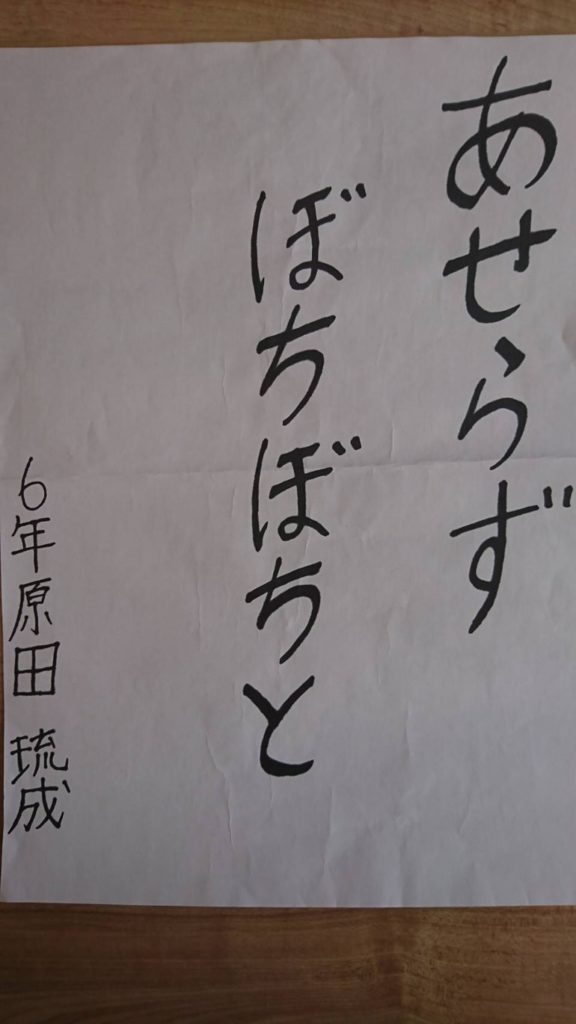 あせらず
ぼちぼちと
6年原田 琉成